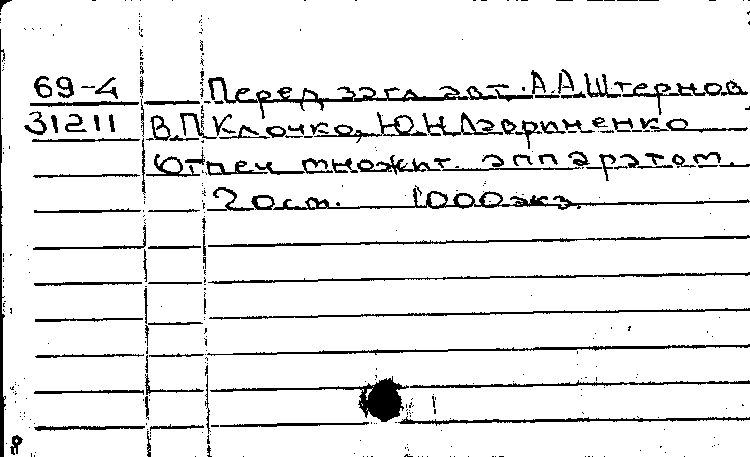 69-4 Перед загл. авт. А.А.Штернов
31211 В.П.Клочко, Ю.Н.Лавриненко
Отпеч. множит. аппаратом.
20см. 1000экз.
8